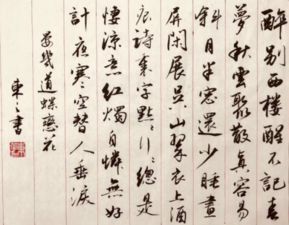 醉別西樓醒不記春
夢秋雲聚散真容易
斜月半窓還少睡畫
屏閑展吳山翠衣上酒
痕詩裏字點〻行〻總是
悽涼意紅燭自憐無好
計夜寒空替人垂淚
晏幾道蝶戀花
東之書